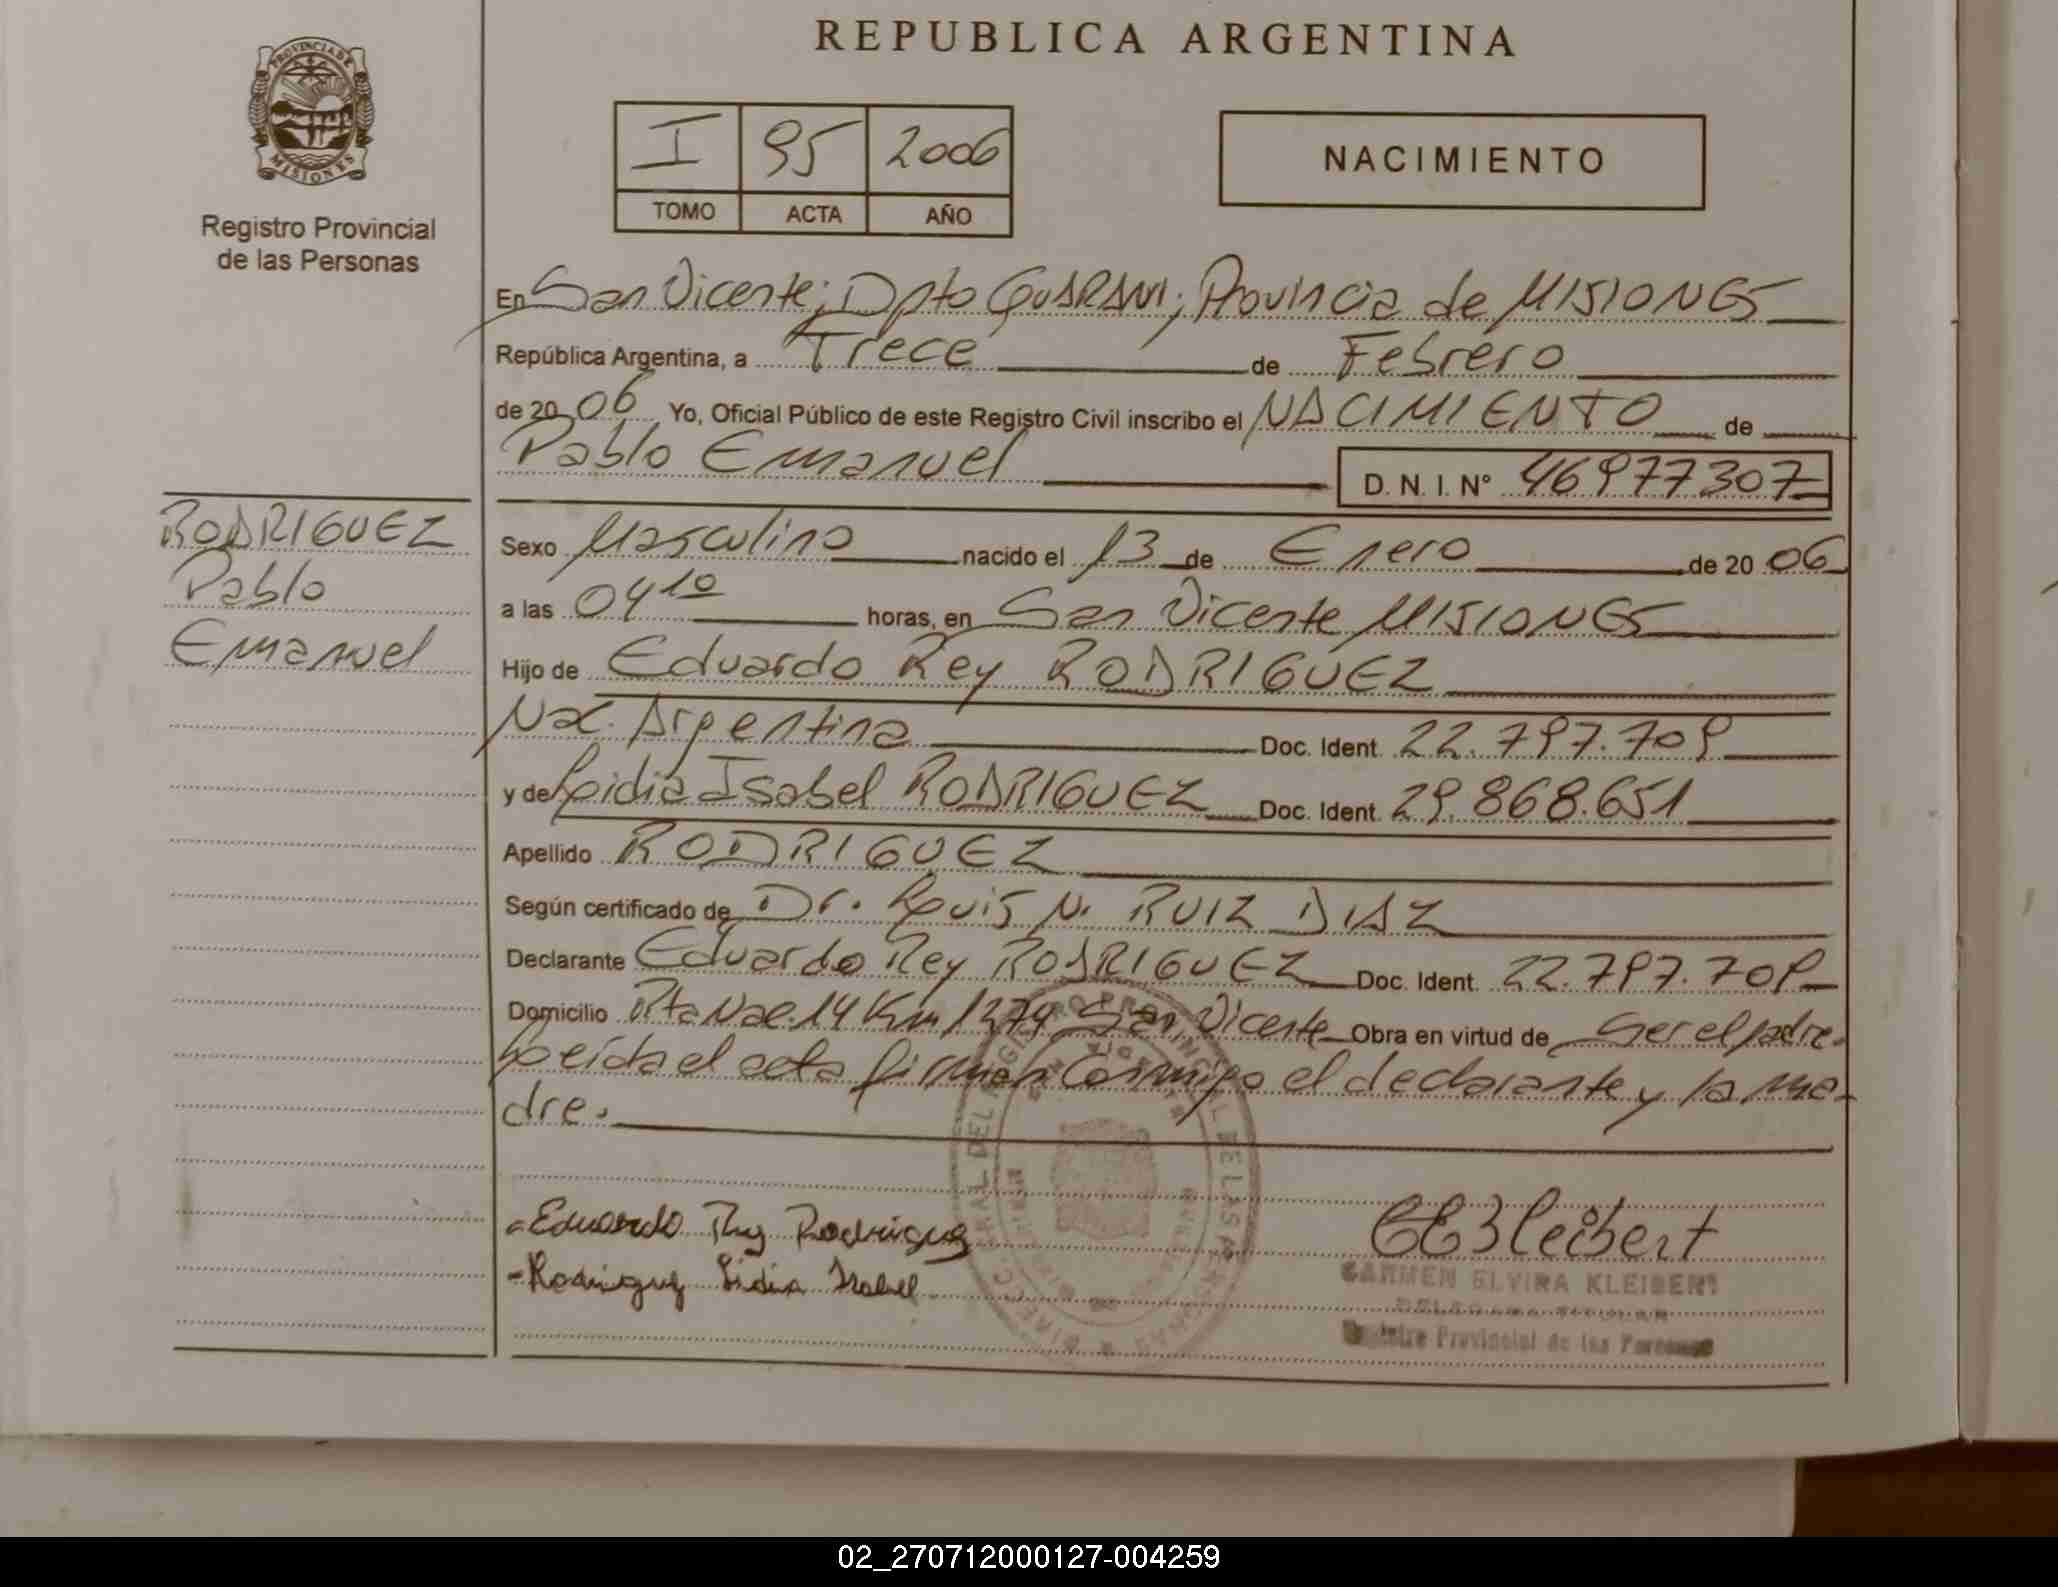 REPUBLICA ARGENTINA
PROVINCIA DE
MISIONES
Registro Provincial
de las Personas
I 95 2006
TOMO ACTA AÑO
NACIMIENTO
En San Vicente; Dpto GUARANI; Provincia de MISIONES
República Argentina, a Trece de Febrero
de 20 06 Yo, Oficial Público de este Registro Civil inscribo el NACIMIENTO de
Pablo Emanuel D. N. I. N° 46977307
RODRIGUEZ
Pablo
Emanuel
Sexo Masculino nacido el 13 de Enero de 20 06
a las 04 10 horas, en San Vicente MISIONES
Hijo de Eduardo Rey RODRIGUEZ
Nac. Argentina Doc. Ident. 22.797.709
y de Leidia Isabel RODRIGUEZ Doc. Ident. 29.868.651
Apellido RODRIGUEZ
Según certificado de Dr. Louis N. RUIZ DIAZ
Declarante Eduardo Rey RODRIGUEZ Doc. Ident. 22.797.709
Domicilio Rta Nac. 14 Km 1279 San Vicente Obra en virtud de Ser el padre.
Leída el acta firman conmigo el declarante y la ma-
dre.
- Eduardo Rey Rodriguez
- Rodriguez Lidia Isabel
CARMEN ELVIRA KLEIBERT
DELEGADA TITULAR
Registro Provincial de las Personas
02_270712000127-004259